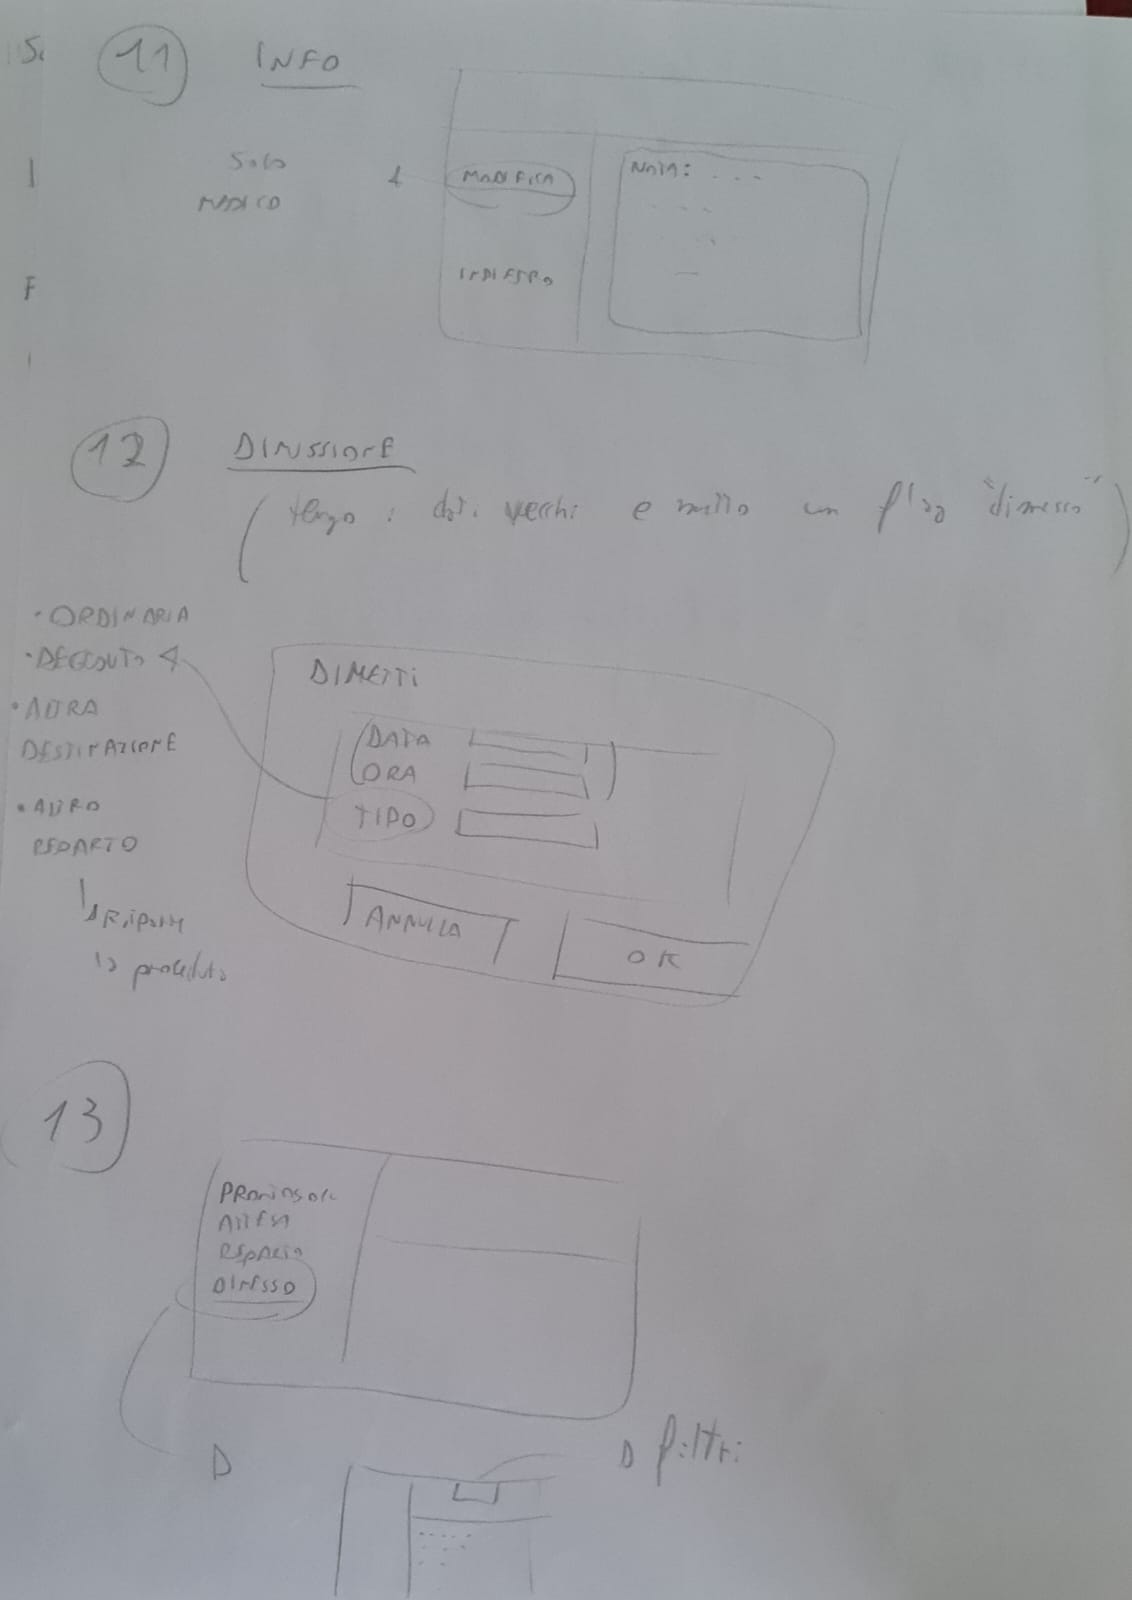 11 INFO
SOLO
MEDICO
MODIFICA
NOTA: . . .
INDIETRO
12 DIMISSIONE
(tengo i dati vecchi e metto un flag "dimesso")
• ORDINARIA
• DECEDUTO
• ALTRA
DESTINAZIONE
• ALTRO
REPARTO
DIMETTI
DATA
ORA
TIPO
ANNULLA
OK
13
ATTESA
REPARTO
DIMESSO
filtri